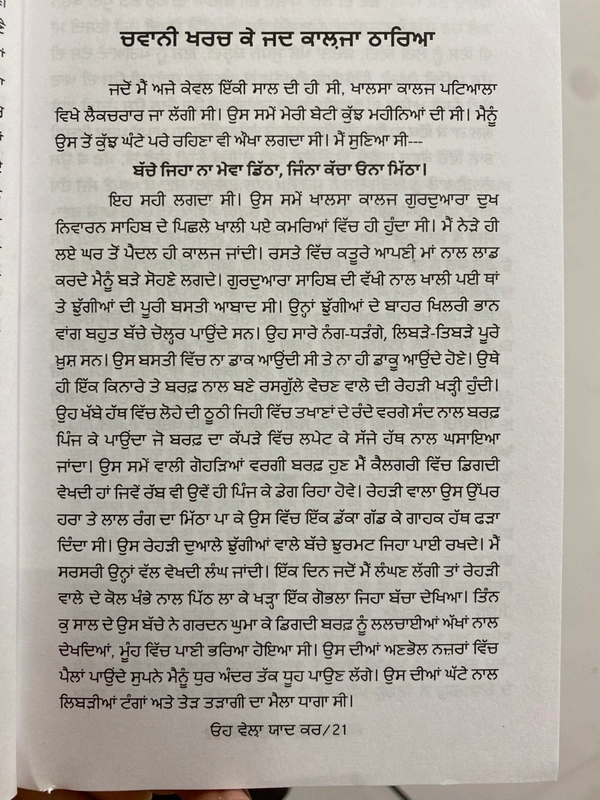 ਚਵਾਨੀ ਖਰਚ ਕੇ ਜਦ ਕਾਲਜਾ ਠਾਰਿਆ
ਜਦੋਂ ਮੈਂ ਅਜੇ ਕੇਵਲ ਇੱਕੀ ਸਾਲ ਦੀ ਹੀ ਸੀ, ਖਾਲਸਾ ਕਾਲਜ ਪਟਿਆਲਾ
ਵਿਖੇ ਲੈਕਚਰਾਰ ਜਾ ਲੱਗੀ ਸੀ। ਉਸ ਸਮੇਂ ਮੇਰੀ ਬੇਟੀ ਕੁੱਝ ਮਹੀਨਿਆਂ ਦੀ ਸੀ। ਮੈਨੂੰ
ਉਸ ਤੋਂ ਕੁੱਝ ਘੰਟੇ ਪਰੇ ਰਹਿਣਾ ਵੀ ਔਖਾ ਲਗਦਾ ਸੀ। ਮੈਂ ਸੁਣਿਆ ਸੀ---
ਬੱਚੇ ਜਿਹਾ ਨਾ ਮੇਵਾ ਡਿੱਠਾ, ਜਿੰਨਾ ਕੱਚਾ ਓਨਾ ਮਿੱਠਾ।
ਇਹ ਸਹੀ ਲਗਦਾ ਸੀ। ਉਸ ਸਮੇਂ ਖਾਲਸਾ ਕਾਲਜ ਗੁਰਦੁਆਰਾ ਦੁਖ
ਨਿਵਾਰਨ ਸਾਹਿਬ ਦੇ ਪਿਛਲੇ ਖਾਲੀ ਪਏ ਕਮਰਿਆਂ ਵਿੱਚ ਹੀ ਹੁੰਦਾ ਸੀ। ਮੈਂ ਨੇੜੇ ਹੀ
ਲਏ ਘਰ ਤੋਂ ਪੈਦਲ ਹੀ ਕਾਲਜ ਜਾਂਦੀ। ਰਸਤੇ ਵਿੱਚ ਕਤੂਰੇ ਆਪਣੀ ਮਾਂ ਨਾਲ ਲਾਡ
ਕਰਦੇ ਮੈਨੂੰ ਬੜੇ ਸੋਹਣੇ ਲਗਦੇ। ਗੁਰਦੁਆਰਾ ਸਾਹਿਬ ਦੀ ਵੱਖੀ ਨਾਲ ਖਾਲੀ ਪਈ ਥਾਂ
ਤੇ ਝੁੱਗੀਆਂ ਦੀ ਪੂਰੀ ਬਸਤੀ ਆਬਾਦ ਸੀ। ਉਨ੍ਹਾਂ ਝੁੱਗੀਆਂ ਦੇ ਬਾਹਰ ਖਿਲਰੀ ਭਾਨ
ਵਾਂਗ ਬਹੁਤ ਬੱਚੇ ਚੋਲ੍ਹਰ ਪਾਉਂਦੇ ਸਨ। ਉਹ ਸਾਰੇ ਨੰਗ-ਧੜੰਗੇ, ਲਿਬੜੇ-ਤਿਬੜੇ ਪੂਰੇ
ਖ਼ੁਸ਼ ਸਨ। ਉਸ ਬਸਤੀ ਵਿੱਚ ਨਾ ਡਾਕ ਆਉਂਦੀ ਸੀ ਤੇ ਨਾ ਹੀ ਡਾਕੂ ਆਉਂਦੇ ਹੋਣੇ। ਉਥੇ
ਹੀ ਇੱਕ ਕਿਨਾਰੇ ਤੇ ਬਰਫ਼ ਨਾਲ ਬਣੇ ਰਸਗੁੱਲੇ ਵੇਚਣ ਵਾਲੇ ਦੀ ਰੇਹੜੀ ਖੜ੍ਹੀ ਹੁੰਦੀ।
ਉਹ ਖੱਬੇ ਹੱਥ ਵਿੱਚ ਲੋਹੇ ਦੀ ਠੂਠੀ ਜਿਹੀ ਵਿੱਚ ਤਖਾਣਾਂ ਦੇ ਰੰਦੇ ਵਰਗੇ ਸੰਦ ਨਾਲ ਬਰਫ਼
ਪਿੰਜ ਕੇ ਪਾਉਂਦਾ ਜੋ ਬਰਫ਼ ਦਾ ਕੱਪੜੇ ਵਿੱਚ ਲਪੇਟ ਕੇ ਸੱਜੇ ਹੱਥ ਨਾਲ ਘਸਾਇਆ
ਜਾਂਦਾ। ਉਸ ਸਮੇਂ ਵਾਲੀ ਗੋਹੜਿਆਂ ਵਰਗੀ ਬਰਫ਼ ਹੁਣ ਮੈਂ ਕੈਲਗਰੀ ਵਿੱਚ ਡਿਗਦੀ
ਵੇਖਦੀ ਹਾਂ ਜਿਵੇਂ ਰੱਬ ਵੀ ਉਵੇਂ ਹੀ ਪਿੰਜ ਕੇ ਡੇਗ ਰਿਹਾ ਹੋਵੇ। ਰੇਹੜੀ ਵਾਲਾ ਉਸ ਉੱਪਰ
ਹਰਾ ਤੇ ਲਾਲ ਰੰਗ ਦਾ ਮਿੱਠਾ ਪਾ ਕੇ ਉਸ ਵਿੱਚ ਇੱਕ ਡੱਕਾ ਗੱਡ ਕੇ ਗਾਹਕ ਹੱਥ ਫੜਾ
ਦਿੰਦਾ ਸੀ। ਉਸ ਰੇਹੜੀ ਦੁਆਲੇ ਝੁੱਗੀਆਂ ਵਾਲੇ ਬੱਚੇ ਝੁਰਮਟ ਜਿਹਾ ਪਾਈ ਰਖਦੇ। ਮੈਂ
ਸਰਸਰੀ ਉਨ੍ਹਾਂ ਵੱਲ ਵੇਖਦੀ ਲੰਘ ਜਾਂਦੀ। ਇੱਕ ਦਿਨ ਜਦੋਂ ਮੈਂ ਲੰਘਣ ਲੱਗੀ ਤਾਂ ਰੇਹੜੀ
ਵਾਲੇ ਦੇ ਕੋਲ ਖੰਭੇ ਨਾਲ ਪਿੱਠ ਲਾ ਕੇ ਖੜ੍ਹਾ ਇੱਕ ਗੋਭਲਾ ਜਿਹਾ ਬੱਚਾ ਦੇਖਿਆ। ਤਿੰਨ
ਕੁ ਸਾਲ ਦੇ ਉਸ ਬੱਚੇ ਨੇ ਗਰਦਨ ਘੁਮਾ ਕੇ ਡਿਗਦੀ ਬਰਫ਼ ਨੂੰ ਲਲਚਾਈਆਂ ਅੱਖਾਂ ਨਾਲ
ਦੇਖਦਿਆਂ, ਮੂੰਹ ਵਿੱਚ ਪਾਣੀ ਭਰਿਆ ਹੋਇਆ ਸੀ। ਉਸ ਦੀਆਂ ਅਣਭੋਲ ਨਜ਼ਰਾਂ ਵਿੱਚ
ਪੈਲਾਂ ਪਾਉਂਦੇ ਸੁਪਨੇ ਮੈਨੂੰ ਧੁਰ ਅੰਦਰ ਤੱਕ ਧੂਹ ਪਾਉਣ ਲੱਗੇ। ਉਸ ਦੀਆਂ ਘੱਟੇ ਨਾਲ
ਲਿਬੜੀਆਂ ਟੰਗਾਂ ਅਤੇ ਤੇੜ ਤੜਾਗੀ ਦਾ ਮੈਲਾ ਧਾਗਾ ਸੀ।
ਓਹ ਵੇਲਾ ਯਾਦ ਕਰ/21